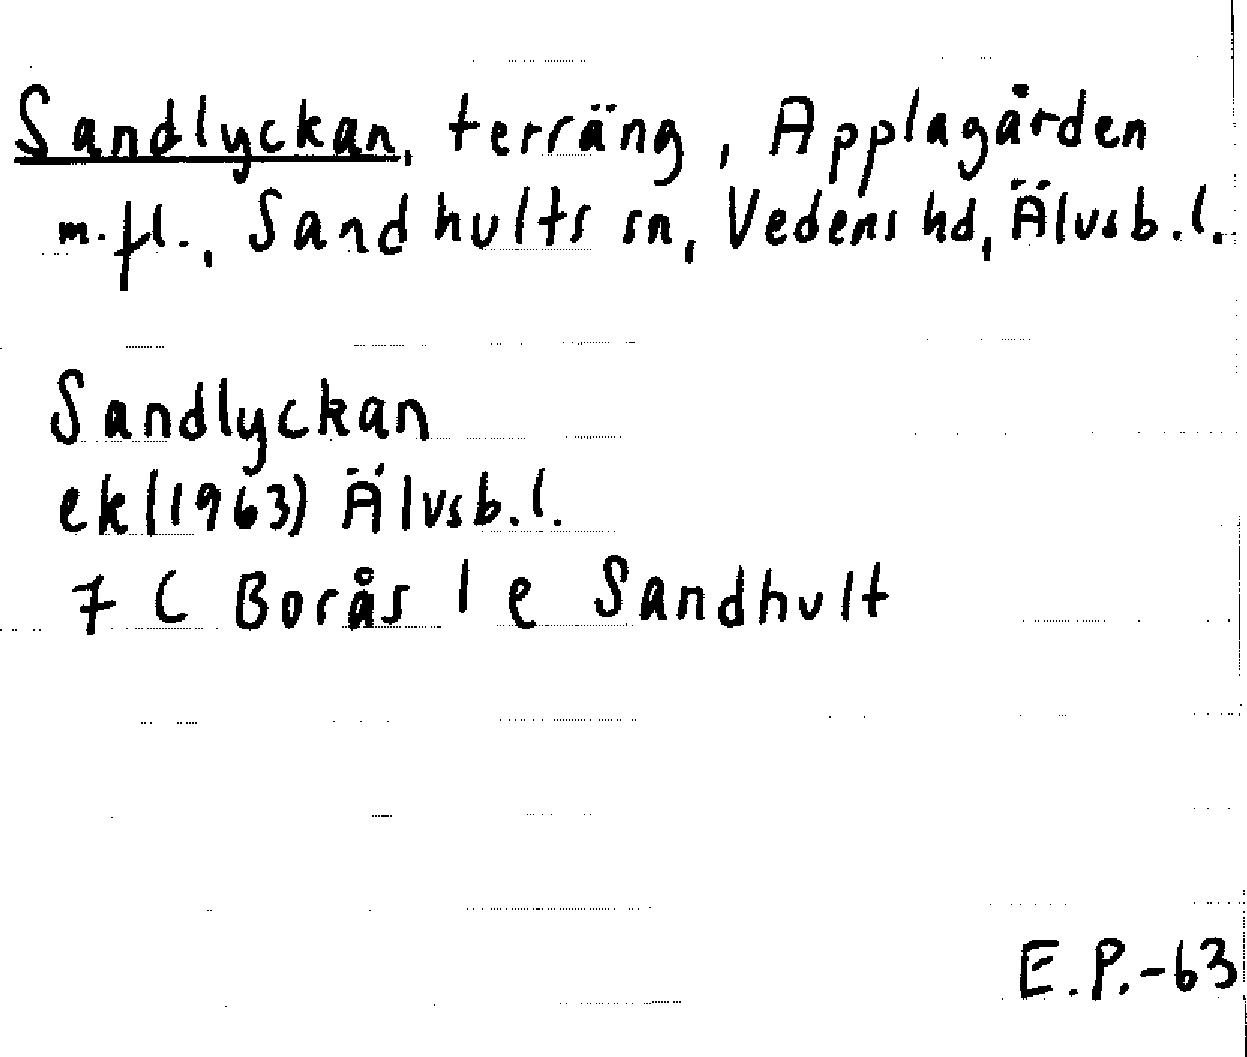 Sandlyckan, terräng, Applagården
m.fl., Sandhults sn, Vedens hd, Älvsb.l.
Sandlyckan
ek (1963) Älvsb.l.
7 C Borås 1 e Sandhult
E.P.-63